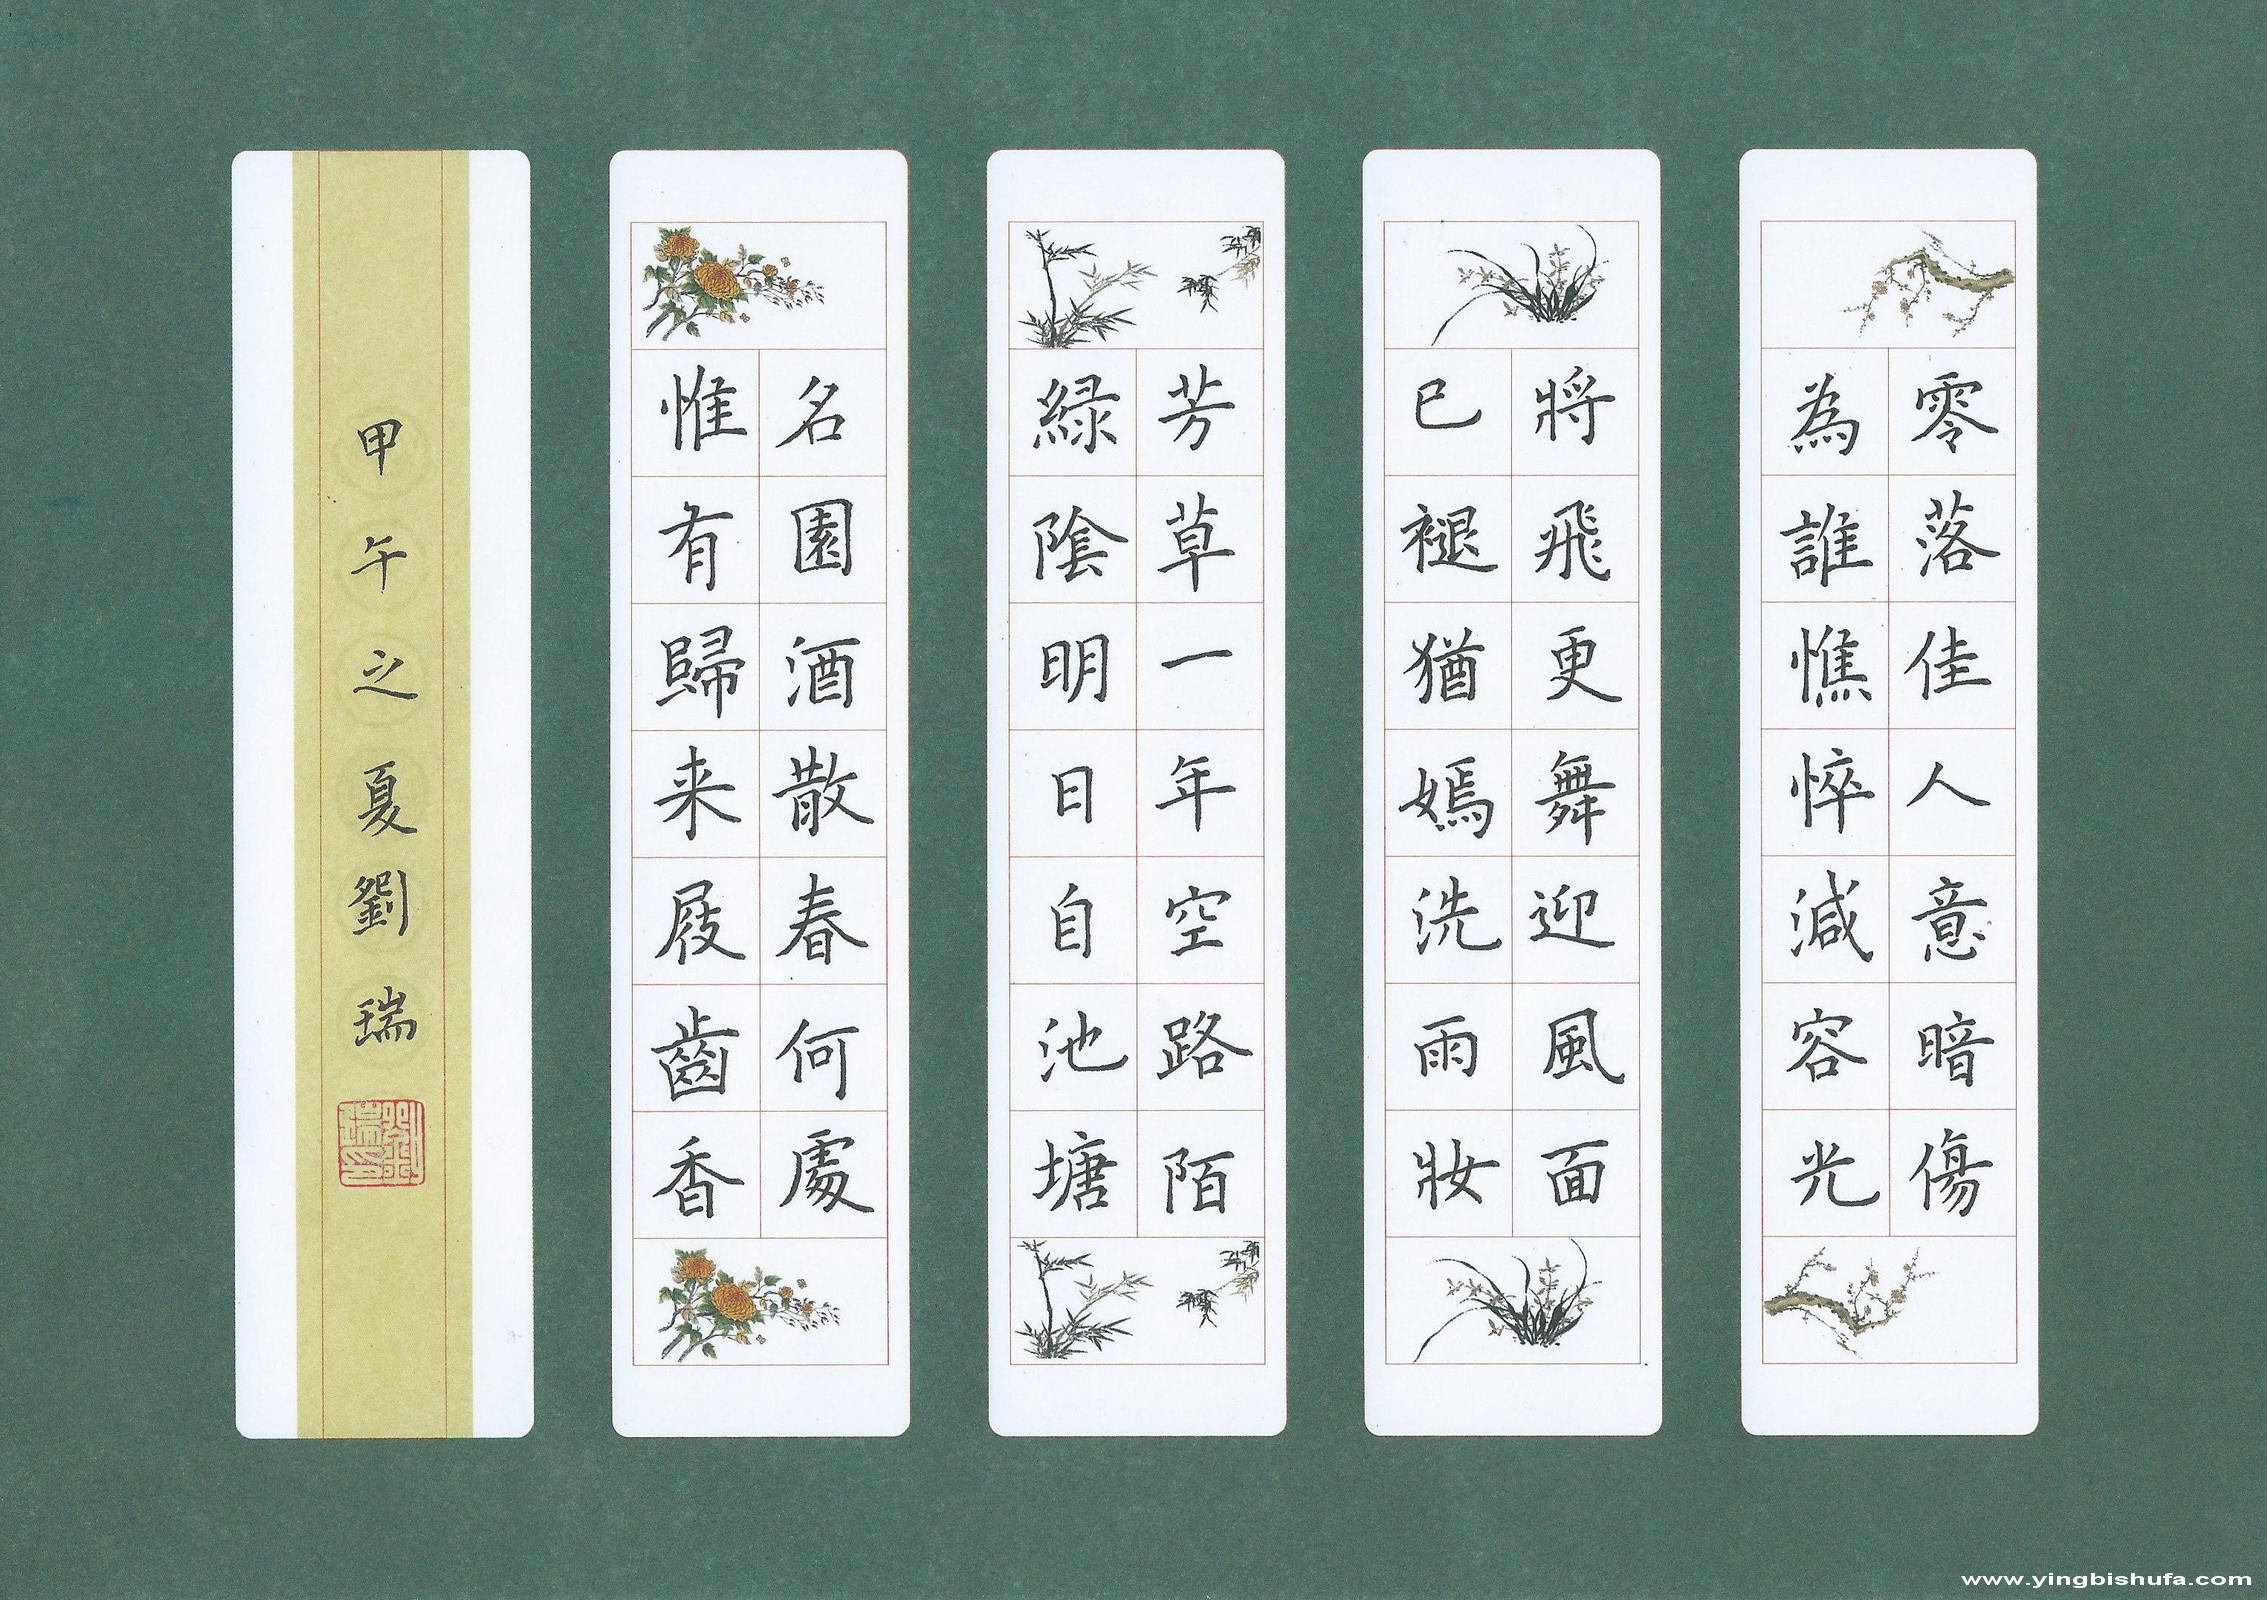 零落佳人意暗傷
為誰憔悴減容光
將飛更舞迎風面
已褪猶嫣洗雨妝
芳草一年空路陌
綠陰明日自池塘
名園酒散春何處
惟有歸来屐齒香
甲午之夏劉瑞
劉瑞印
www.yingbishufa.com